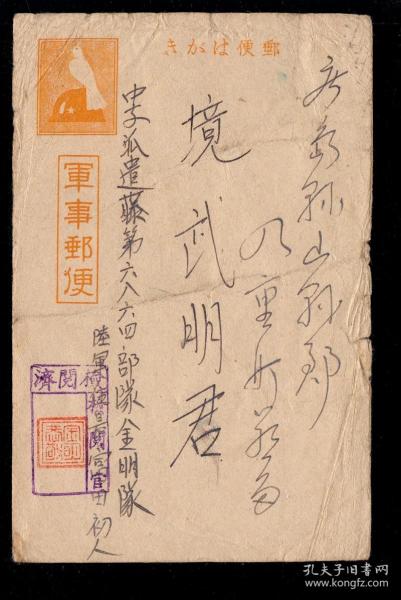 きがは便郵
軍事郵便
広島県山県郡
八重町
境武明君
中支派遣藤第六八六四部隊金明隊
陸軍
初人
検閲済
孔夫子旧书网
www.kongfz.com